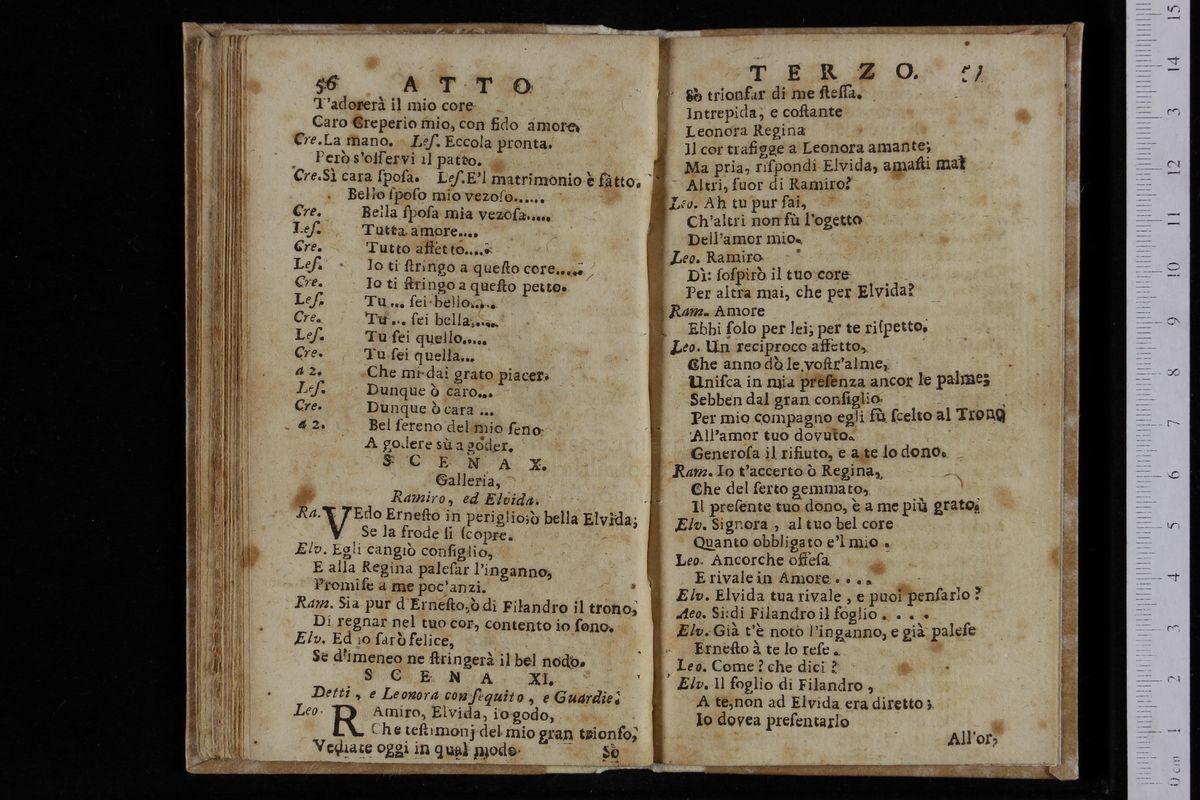 56 ATTO
T'adorerà il mio core
Caro Creperio mio, con fido amore.
Cre. La mano. Leſ. Eccola pronta.
Però s'oſſervi il patto.
Cre. Sì cara ſpoſa. Leſ. E'l matrimonio è fàtto.
Bello ſpoſo mio vezoſo......
Cre. Bella ſpoſa mia vezoſa.....
Leſ. Tutta amore....
Cre. Tutto affetto.....
Leſ. Io ti ſtringo a queſto core.....
Cre. Io ti ſtringo a queſto petto.
Leſ. Tu... ſei bello.....
Cre. Tu... ſei bella.....
Leſ. Tu ſei quello.....
Cre. Tu ſei quella...
a 2. Che mi dai grato piacer.
Leſ. Dunque ò caro...
Cre. Dunque ò cara ...
a 2. Bel ſereno del mio ſeno
A godere sù a goder.
SCENA X.
Galleria,
Ramiro, ed Elvida.
Ra. VEdo Erneſto in periglio;ò bella Elvida;
Se la frode ſi ſcopre.
Elv. Egli cangiò conſiglio,
E alla Regina paleſar l'inganno,
Promiſe a me poc'anzi.
Ram. Sia pur d'Erneſto,ò di Filandro il trono,
Di regnar nel tuo cor, contento io ſono.
Elv. Ed io ſarò felice,
Se d'imeneo ne ſtringerà il bel nodo.
SCENA XI.
Detti, e Leonora con ſequito, e Guardie.
Leo. RAmiro, Elvida, io godo,
Che teſtimonj del mio gran trionfo,
Vediate oggi in qual modo
Sò
TERZO. 57
Sò trionfar di me ſteſſa.
Intrepida, e coſtante
Leonora Regina
Il cor trafigge a Leonora amante;
Ma pria, riſpondi Elvida, amaſti mai
Altri, fuor di Ramiro?
Leo. Ah tu pur ſai,
Ch'altri non fù l'ogetto
Dell'amor mio.
Leo. Ramiro
Dì: ſoſpirò il tuo core
Per altra mai, che per Elvida?
Ram. Amore
Ebbi ſolo per lei; per te riſpetto.
Leo. Un reciproco affetto,
Che anno dò le voſtr'alme,
Uniſca in mia preſenza ancor le palme;
Sebben dal gran conſiglio
Per mio compagno egli fù ſcelto al Trono
All'amor tuo dovuto.
Generoſa il rifiuto, e a te lo dono.
Ram. Io t'accerto ò Regina,
Che del ſerto gemmato,
Il preſente tuo dono, è a me più grato.
Elv. Signora, al tuo bel core
Quanto obbligato e'l mio.
Leo. Ancorche offeſa
E rivale in Amore....
Elv. Elvida tua rivale, e puoi penſarlo?
Aeo. Si: di Filandro il foglio....
Elv. Già t'è noto l'inganno, e già paleſe
Erneſto à te lo reſe.
Leo. Come? che dici?
Elv. Il foglio di Filandro,
A te,non ad Elvida era diretto;
Io dovea preſentarlo
All'or,
15 14 13 12 11 10 9 8 7 6 5 4 3 2 1 0 cm